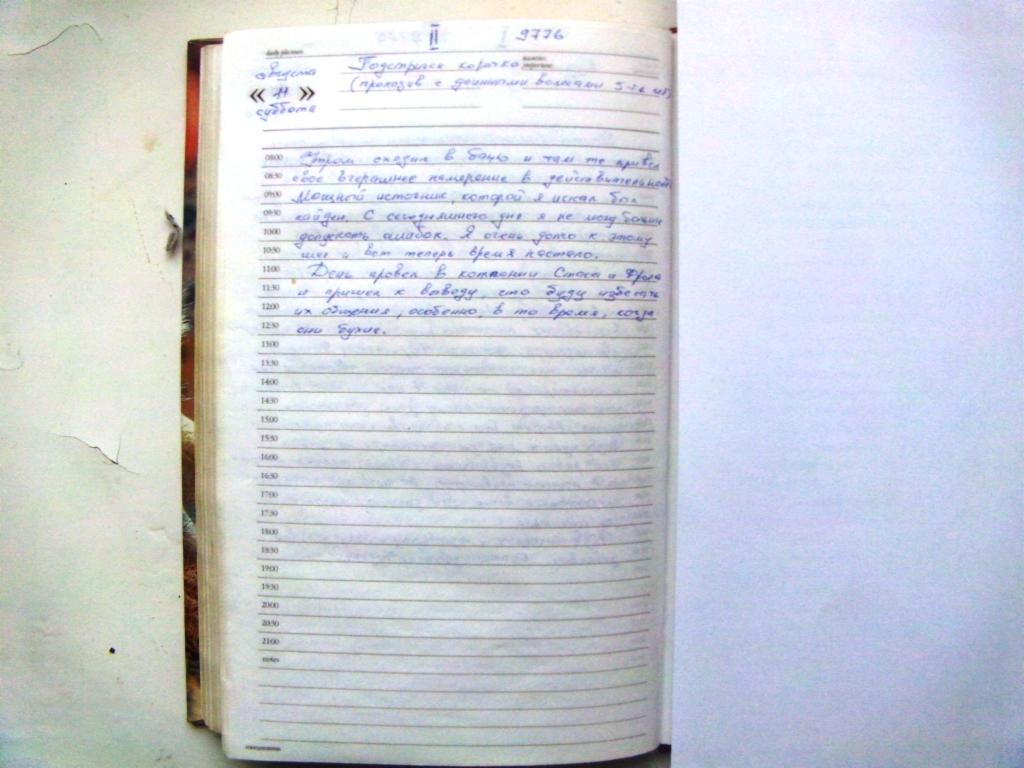 II 9776
августа
Подстригся коротко
« 11 »
(проходив с длинными волосами 5-6 лет)
суббота
08:00 Утром сходил в баню и там же привёл
08:30 своё вчерашнее намерение в действительность.
09:00 Мощный источник, которой я искал был
09:30 найден. С сегодняшнего дня я не могу больше
10:00 допускать ошибок. Я очень долго к этому
10:30 шёл и вот теперь время настало.
11:00 День провёл в компании Стаса и Фрола
11:30 и пришел к выводу, что буду избегать
12:00 их общения, особенно, в то время, когда
12:30 они бухие.
13:00
13:30
14:00
14:30
15:00
15:30
16:00
16:30
17:00
17:30
18:00
18:30
19:00
19:30
20:00
20:30
21:00
notes